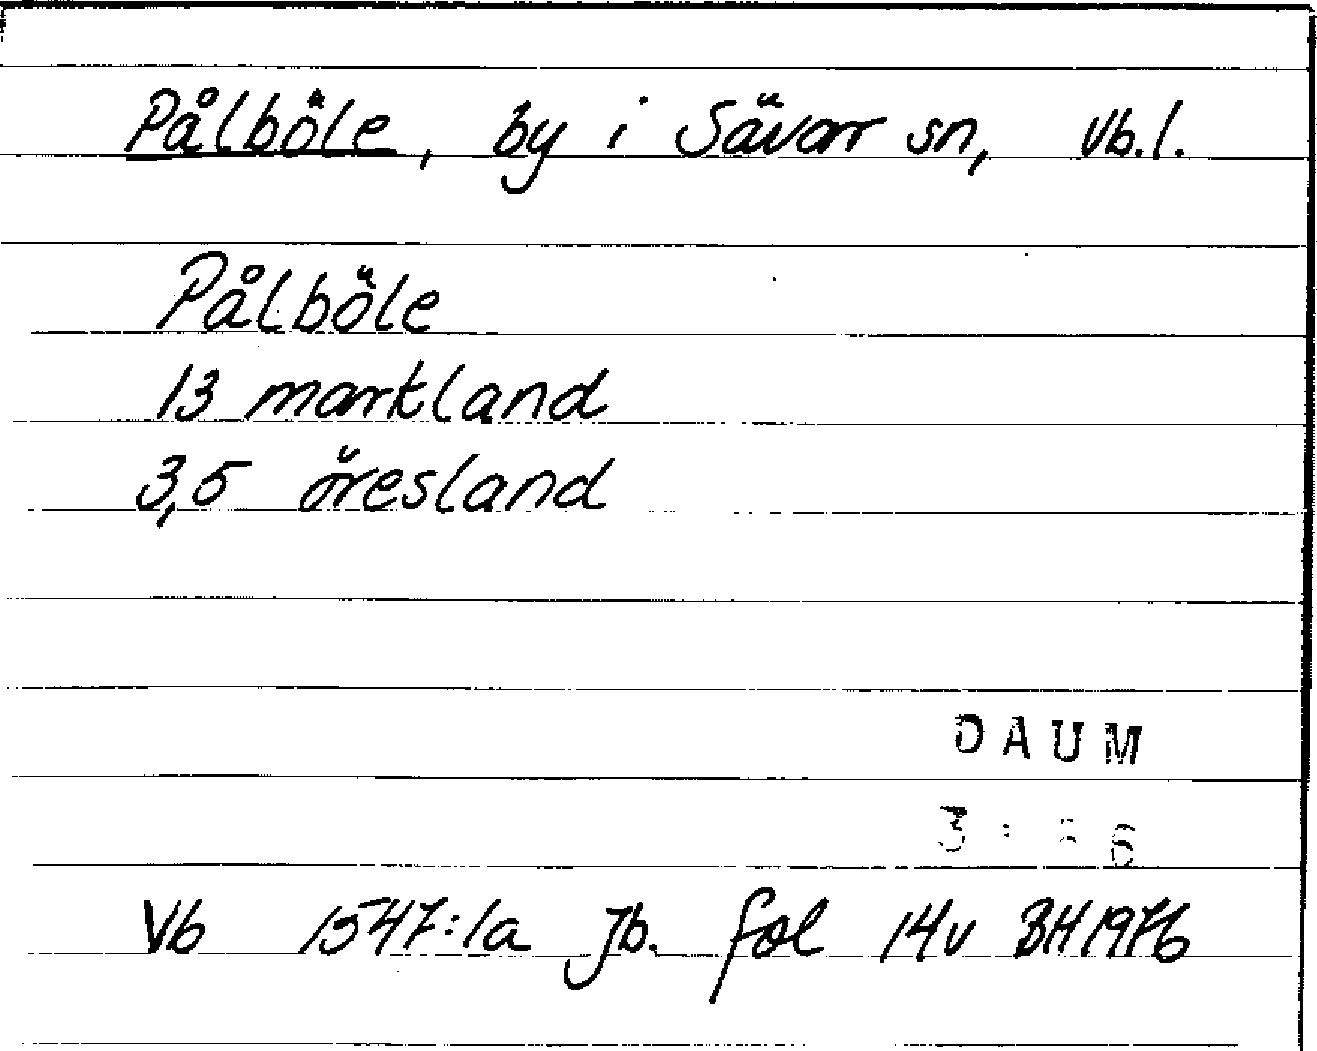 Pålböle, by i Sävar sn, Vb.l.
Pålböle
13 markland
3,5 öresland
DAUM
Vb 1547:1a Jb. fol 14v BH 1976